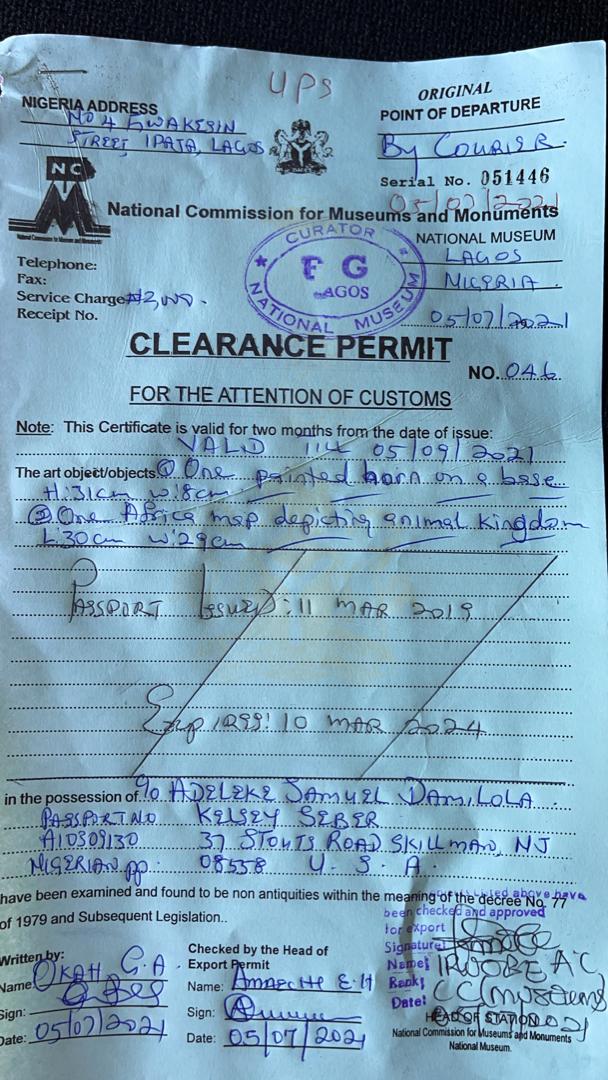 UPS
ORIGINAL
NIGERIA ADDRESS
POINT OF DEPARTURE
STREET, IPATA, LAGOS
By COURIER.
Serial No. 051446
05/07/2021
NC
National Commission for Museums and Monuments
NATIONAL MUSEUM
LAGOS
NIGERIA
05/07/2021
CURATOR
F G
LAGOS
NATIONAL MUSEUM
Telephone:
Fax:
Service Charge
Receipt No.
CLEARANCE PERMIT
NO. 046
FOR THE ATTENTION OF CUSTOMS
Note: This Certificate is valid for two months from the date of issue:
VALID 05/09/2021
The art object/objects ① One painted horn on a base
H:31cm W:8cm
② One Africa map depicting animal kingdom
L:30cm W:29cm
PASSPORT ISSUED: 11 MAR 2019
Expires: 10 MAR 2024
in the possession of c/o ADELEKE SAMUEL DAMILOLA
PASSPORT NO KELSEY SEBER
A10309130 37 STOUTS ROAD SKILLMAN, NJ
NIGERIAN PP. 08558 U.S.A.
have been examined and found to be non antiquities within the meaning of the decree No. 77
of 1979 and Subsequent Legislation..
above have
been checked and approved
for export
Signature
Name:
Rank:
Date:
HEAD OF STATION
National Commission for Museums and Monuments
National Museum.
Written by:
Name: OKAH G.A
Sign:
Date: 05/07/2021
Checked by the Head of
Export Permit
Name: E.H
Sign:
Date: 05/07/2021